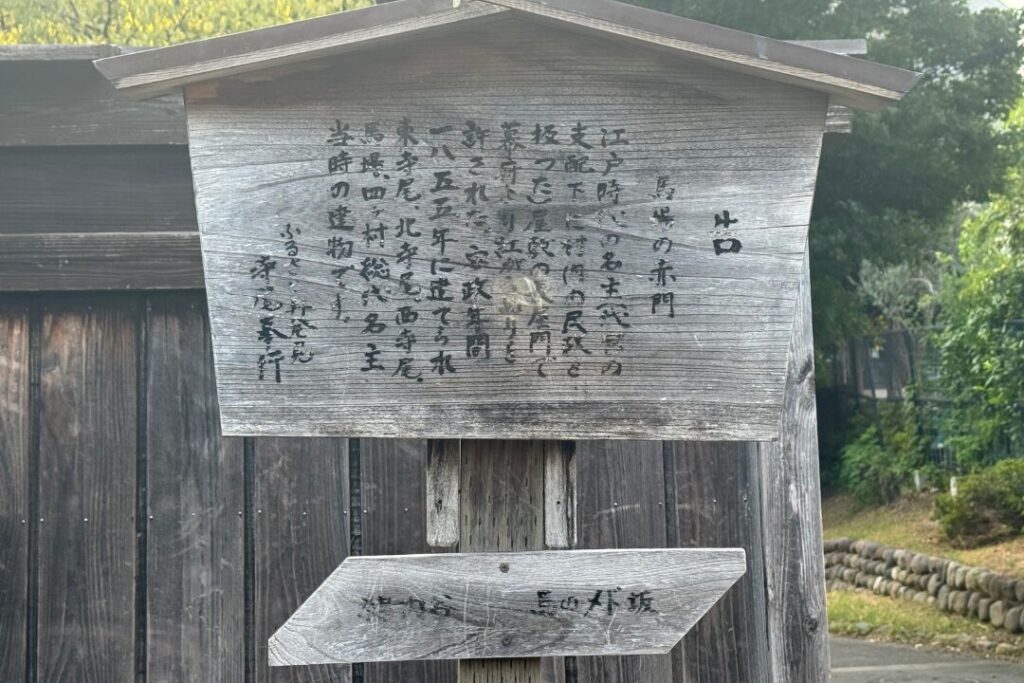 馬場の赤門
江戸時代の名主(代官の
支配下に村内の民政を
扱った)屋敷の長屋門で
幕府より 塗りを
許された。安政年間
一八五五年に建てられ
東寺尾、北寺尾、西寺尾、
馬場、四ヶ村総代名主
当時の建物です。
ふるさと新発見
寺尾奉行
馬のメド坂